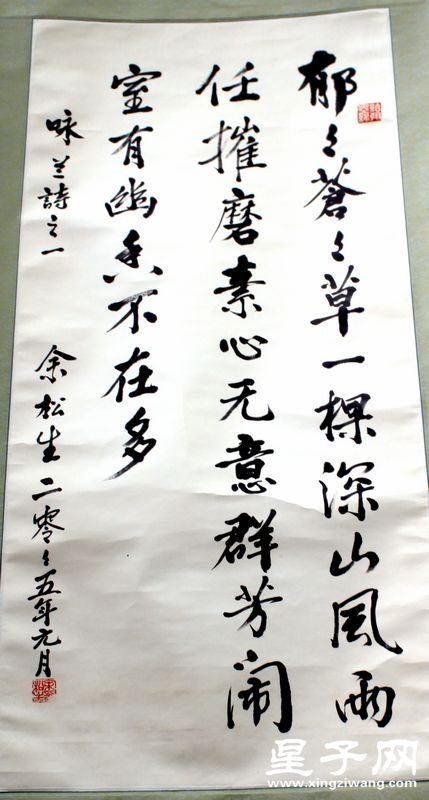 郁〻蒼〻草一棵深山風雨
任摧磨素心无意群芳闹
室有幽香不在多
咏兰詩之一
余松生二零〻五年元月
星子网
www.xingziwang.com